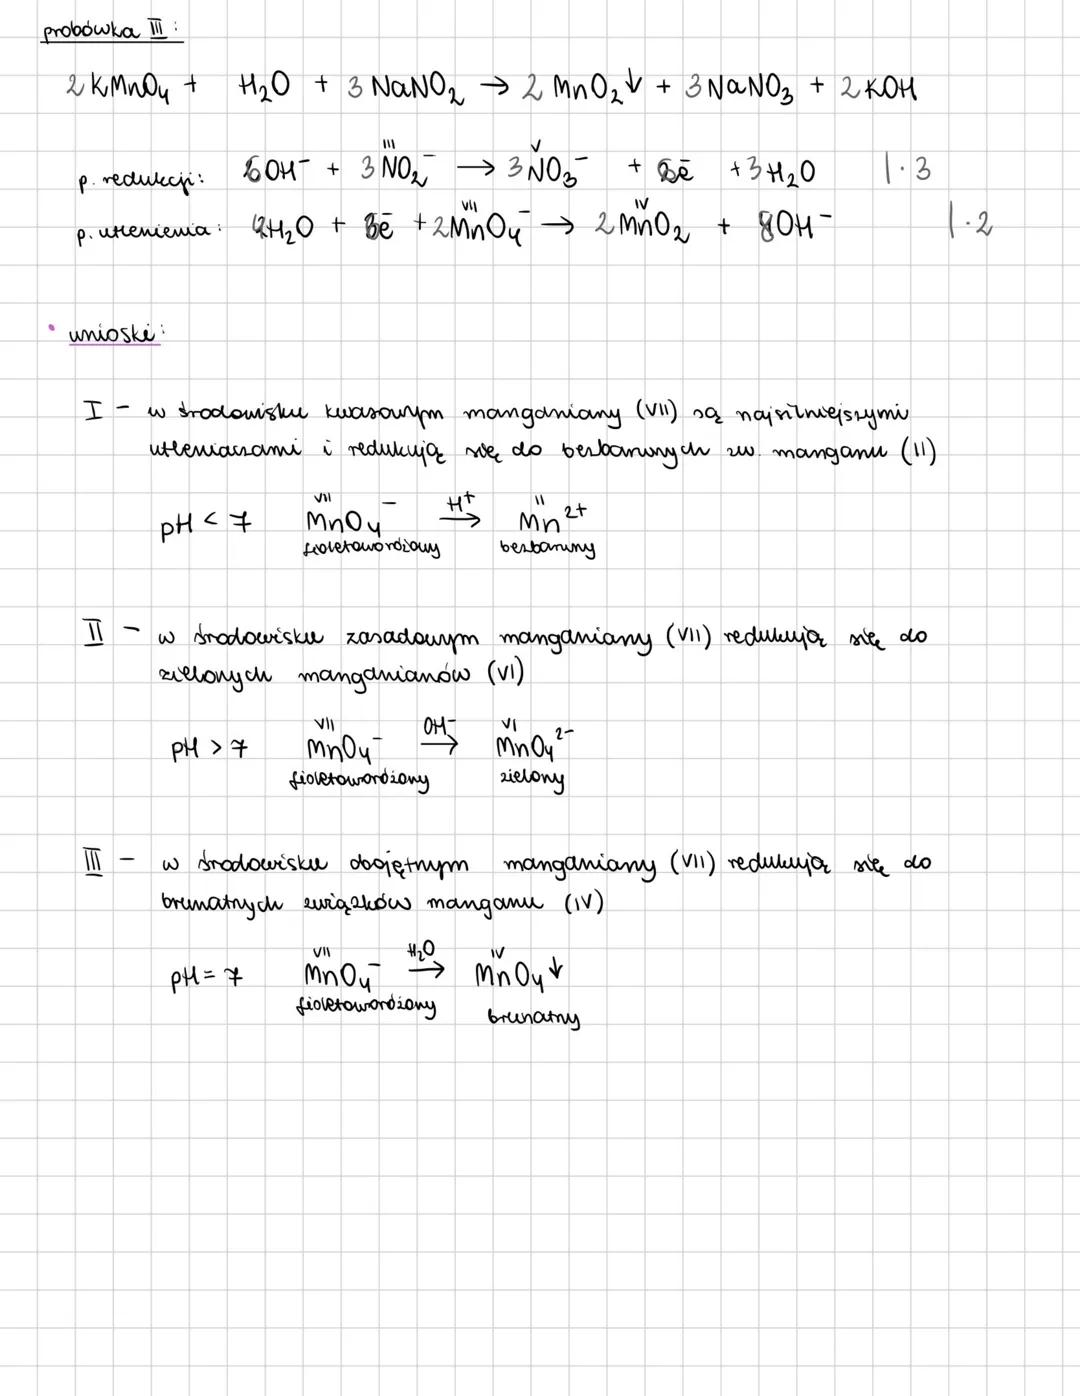 probówka III:
2 KMnO₄ + H₂O + 3 NaNO₂ → 2 MnO₂↓ + 3 NaNO₃ + 2 KOH
III V
p. redukcji: 6OH⁻ + 3 NO₂⁻ → 3 NO₃⁻ + 6ē + 3 H₂O |·3
VII IV
p. utlenienia: 4H₂O + 6ē + 2 MnO₄⁻ → 2 MnO₂ + 8OH⁻ |·2
• wnioski:
I - w środowisku kwasowym manganiany (VII) są najsilniejszymi
utleniaczami i redukują się do bezbarwnych zw. manganu (II)
VII H⁺ II
pH < 7 MnO₄⁻ → Mn²⁺
fioletoworóżowy bezbarwny
II - w środowisku zasadowym manganiany (VII) redukują się do
zielonych manganianów (VI)
VII OH⁻ VI
pH > 7 MnO₄⁻ → MnO₄²⁻
fioletoworóżowy zielony
III - w środowisku obojętnym manganiany (VII) redukują się do
brunatnych związków manganu (IV)
VII H₂O IV
pH = 7 MnO₄⁻ → MnO₄↓
fioletoworóżowy brunatny